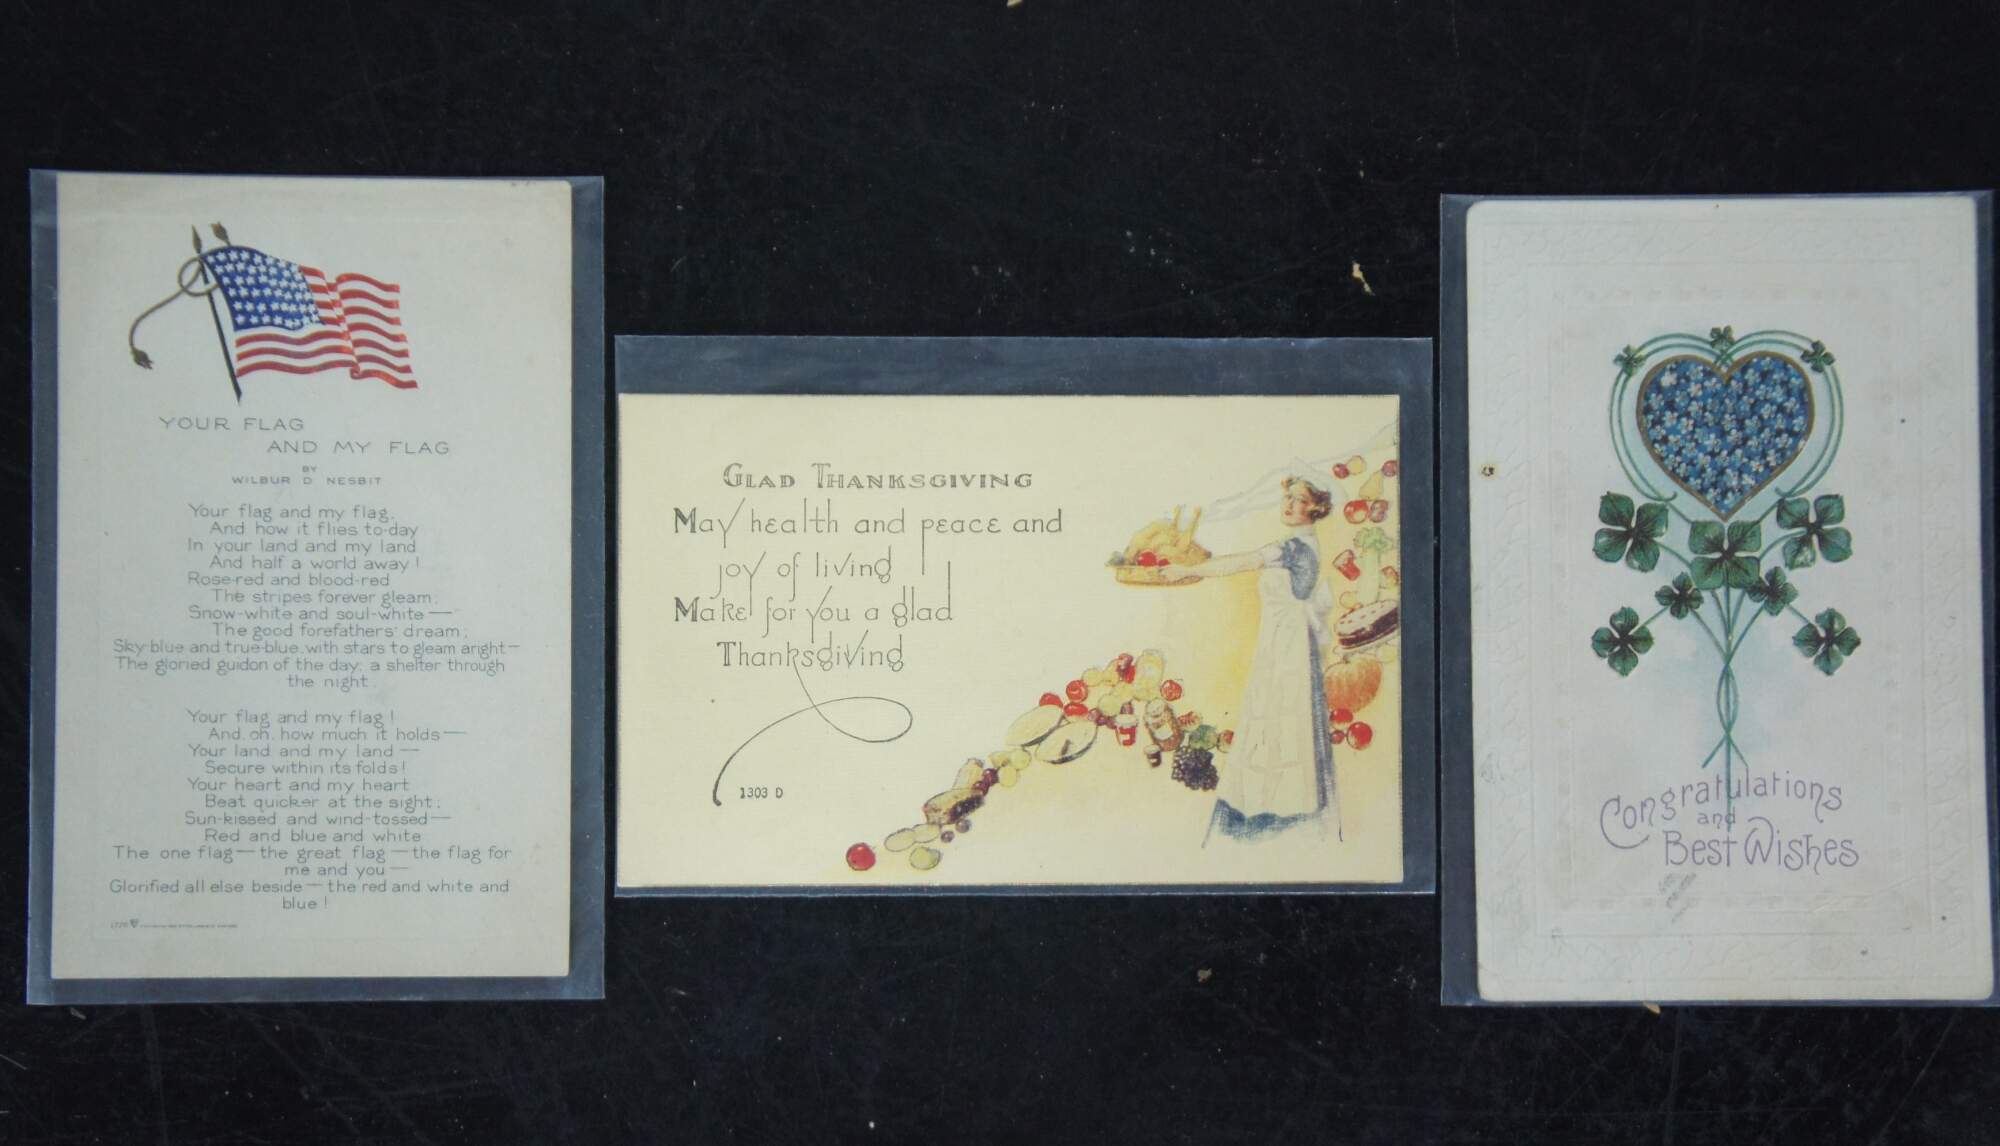 YOUR FLAG
AND MY FLAG
BY
WILBUR D NESBIT
Your flag and my flag,
And how it flies to-day
In your land and my land
And half a world away!
Rose-red and blood-red
The stripes forever gleam;
Snow-white and soul-white—
The good forefathers' dream;
Sky-blue and true-blue, with stars to gleam aright—
The gloried guidon of the day; a shelter through
the night.
Your flag and my flag!
And, oh, how much it holds—
Your land and my land—
Secure within its folds!
Your heart and my heart
Beat quicker at the sight;
Sun-kissed and wind-tossed—
Red and blue and white
The one flag—the great flag—the flag for
me and you—
Glorified all else beside—the red and white and
blue!
GLAD THANKSGIVING
May health and peace and
joy of living
Make for you a glad
Thanksgiving
1303 D
Congratulations
and
Best Wishes